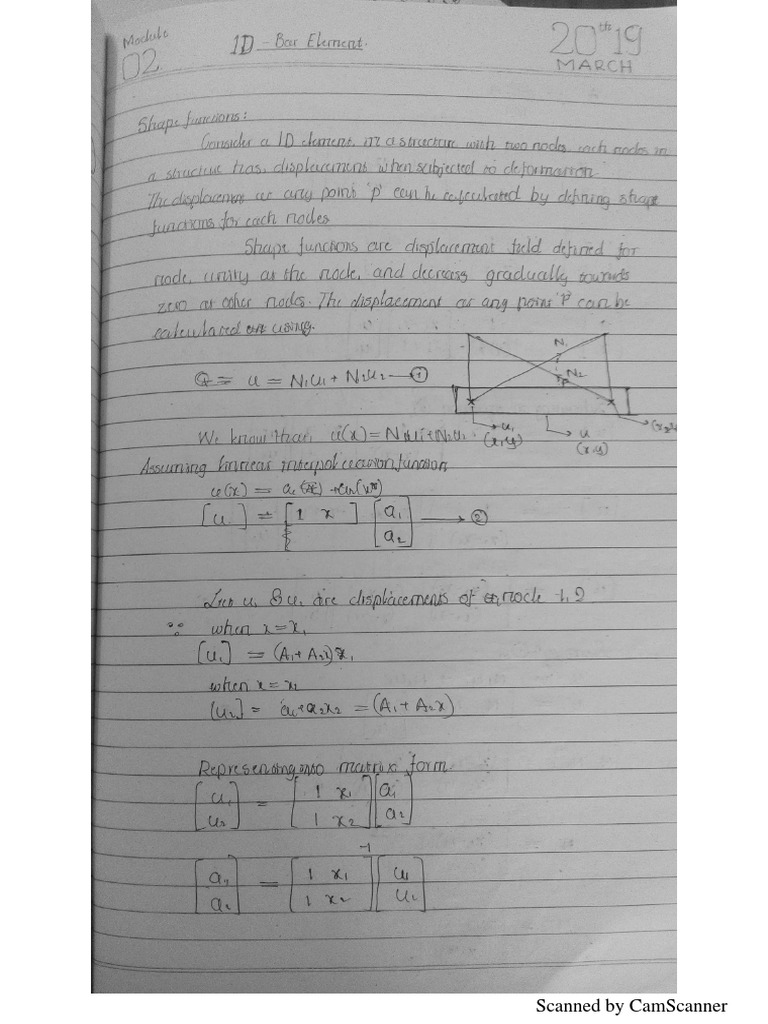 Module
02
1D - Bar Element.
20th 19
MARCH
Shape functions:
Consider a 1D element, in a structure with two nodes, each nodes in
a structure has, displacement when subjected to deformation.
The displacement at any point 'P' can be calculated by defining shape
functions for each nodes
Shape functions are displacement field defined for
node, unity at the node, and decreas gradually towards
zero at other nodes. The displacement at any point 'P' can be
calculated using.
Q = u = N1u1 + N2u2 — 1
N1
N2
P
u1
(x1y)
u
(x,y)
We know that, u(x) = N1u1 + N2u2
Assuming linear interpolation function
[u] = [1 x] [a1
a2] → 2
Let u1 & u2 are displacements of node 1,2
∵ when x = x1
[u1] = (A1 + A2x)x1
when x = x2
[u2] = a1 + a2x2 = (A1 + A2x)
Representing into matrix form
[u1 = [1 x1 [a1
u2] 1 x2] a2]
[a1 = [1 x1 -1 [u1
a2] 1 x2] u2]
Scanned by CamScanner